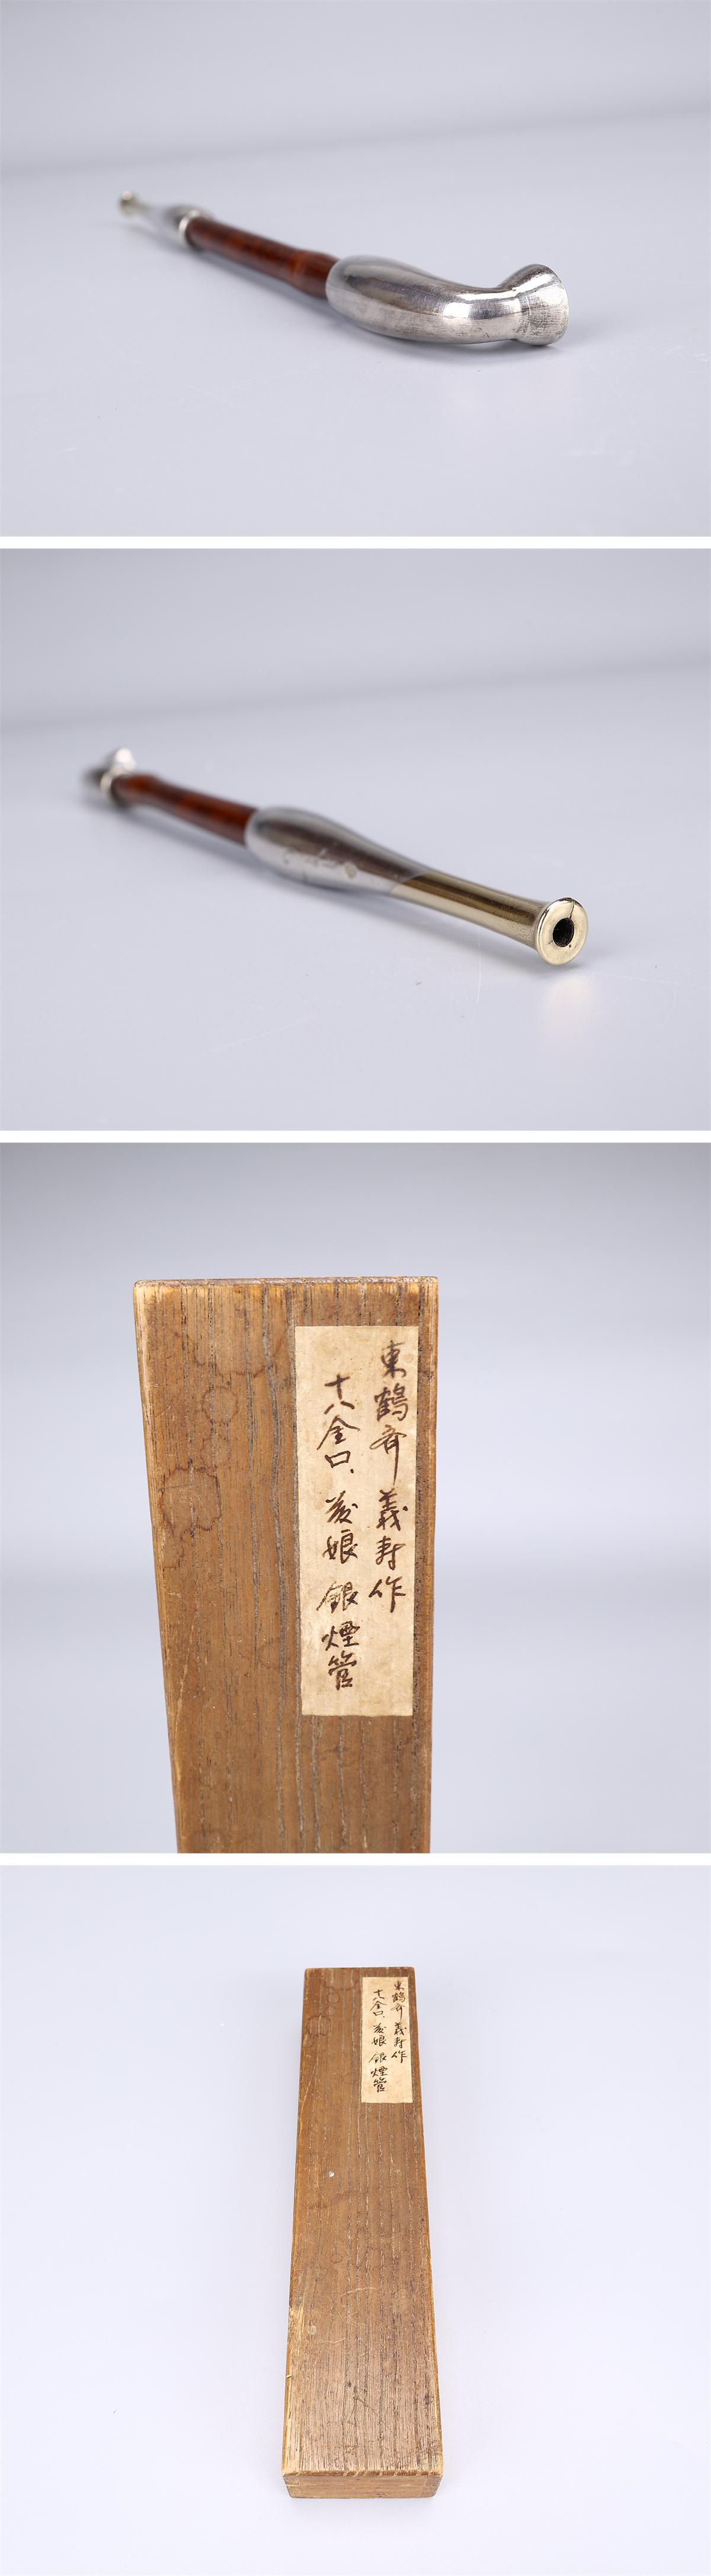 東鶴斉 義寿作
十八金口、娘 銀煙管
東鶴斉 義寿作
十八金口、娘 銀煙管